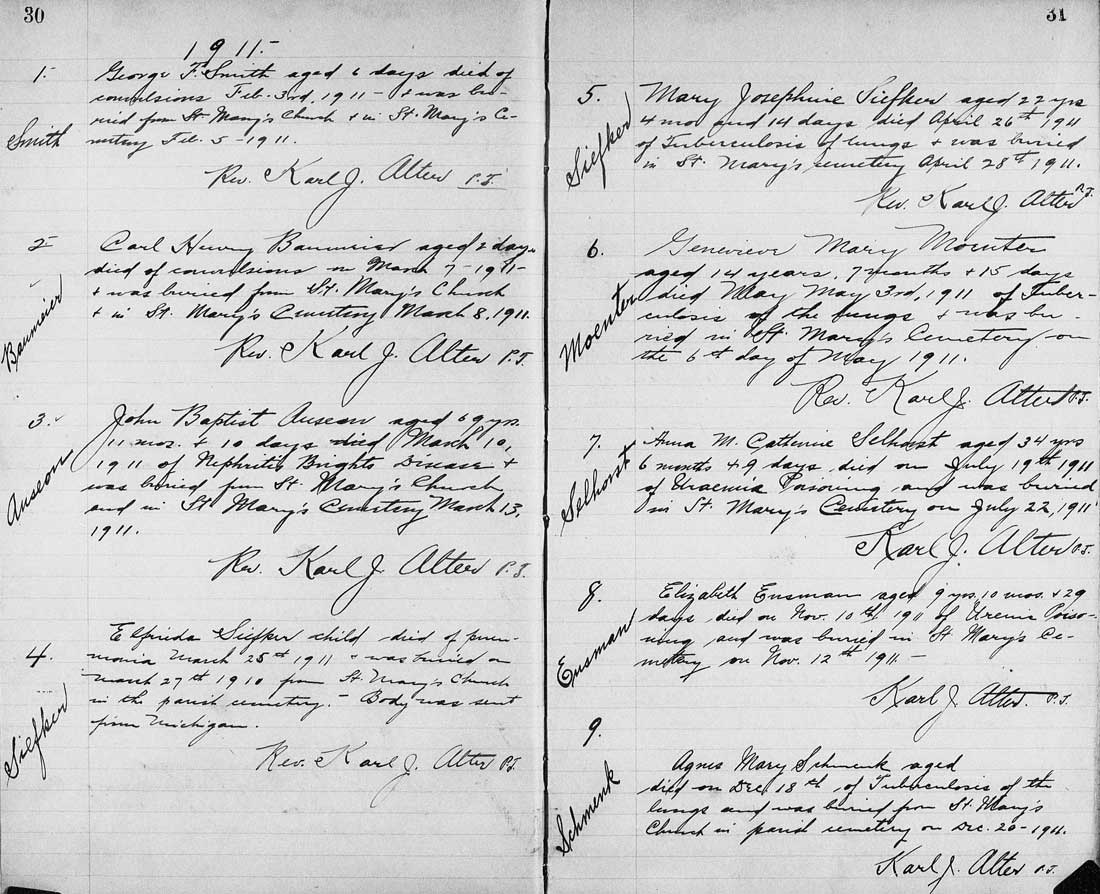 30
1911.-
1.
George F. Smith aged 6 days died of
convulsions Feb. 3rd, 1911 - & was bu-
ried from St Mary's Church & in St. Mary's Ce-
metery Feb. 5 - 1911.
Smith
Rev. Karl J. Alter P.T.
2
Carl Henry Baumeier aged 2 days
died of convulsions on March 7 - 1911 -
& was buried from St. Mary's Church
& in St. Mary's Cemetery March 8, 1911.
Baumeier
Rev. Karl J. Alter P.T.
3.
John Baptist Auseon aged 69 yrs.
11 mos. & 10 days died March 10,
1911 of Nephritis Brights Disease &
was buried from St. Mary's Church
and in St Mary's Cemetery March 13,
1911.
Auseon
Rev. Karl J. Alter P.T.
4.
Elfrieda Siefker child died of pneu-
monia March 25th 1911 & was buried on
March 27th 1910 from St. Mary's Church
in the parish cemetery. - Body was sent
from Michigan.
Siefker
Rev. Karl J. Alter P.T.
31
5.
Mary Josephine Siefker aged 22 yrs
4 mo and 14 days died April 26th 1911
of Tuberculosis of lungs & was buried
in St. Mary's cemetery April 28th 1911.
Siefker
Rev. Karl J. Alter P.T.
6.
Genevieve Mary Moenter
aged 14 years, 7 months & 15 days
died May May 3rd, 1911 of Tuber-
culosis of the lungs & was bu-
ried in St. Mary's Cemetery on
the 6th day of May 1911.
Moenter
Rev. Karl J. Alter P.T.
7.
Anna M. Catherine Selhorst aged 34 yrs
6 months & 9 days, died on July 19th 1911
of Uraemia Poisoning and was buried
in St. Mary's Cemetery on July 22, 1911
Selhorst
Karl J. Alter P.T.
8.
Elizabeth Ensman aged 9 yrs. 10 mos. & 29
days died on Nov. 10th 1911 of Uremia Poiso-
ning and was buried in St Mary's Ce-
metery on Nov. 12th 1911. -
Ensman
Karl J. Alter. P.T.
9.
Agnes Mary Schmenk aged
died on Dec 18th, of Tuberculosis of the
lungs and was buried from St. Mary's
Church in parish cemetery on Dec. 20 - 1911.
Schmenk
Karl J. Alter P.T.